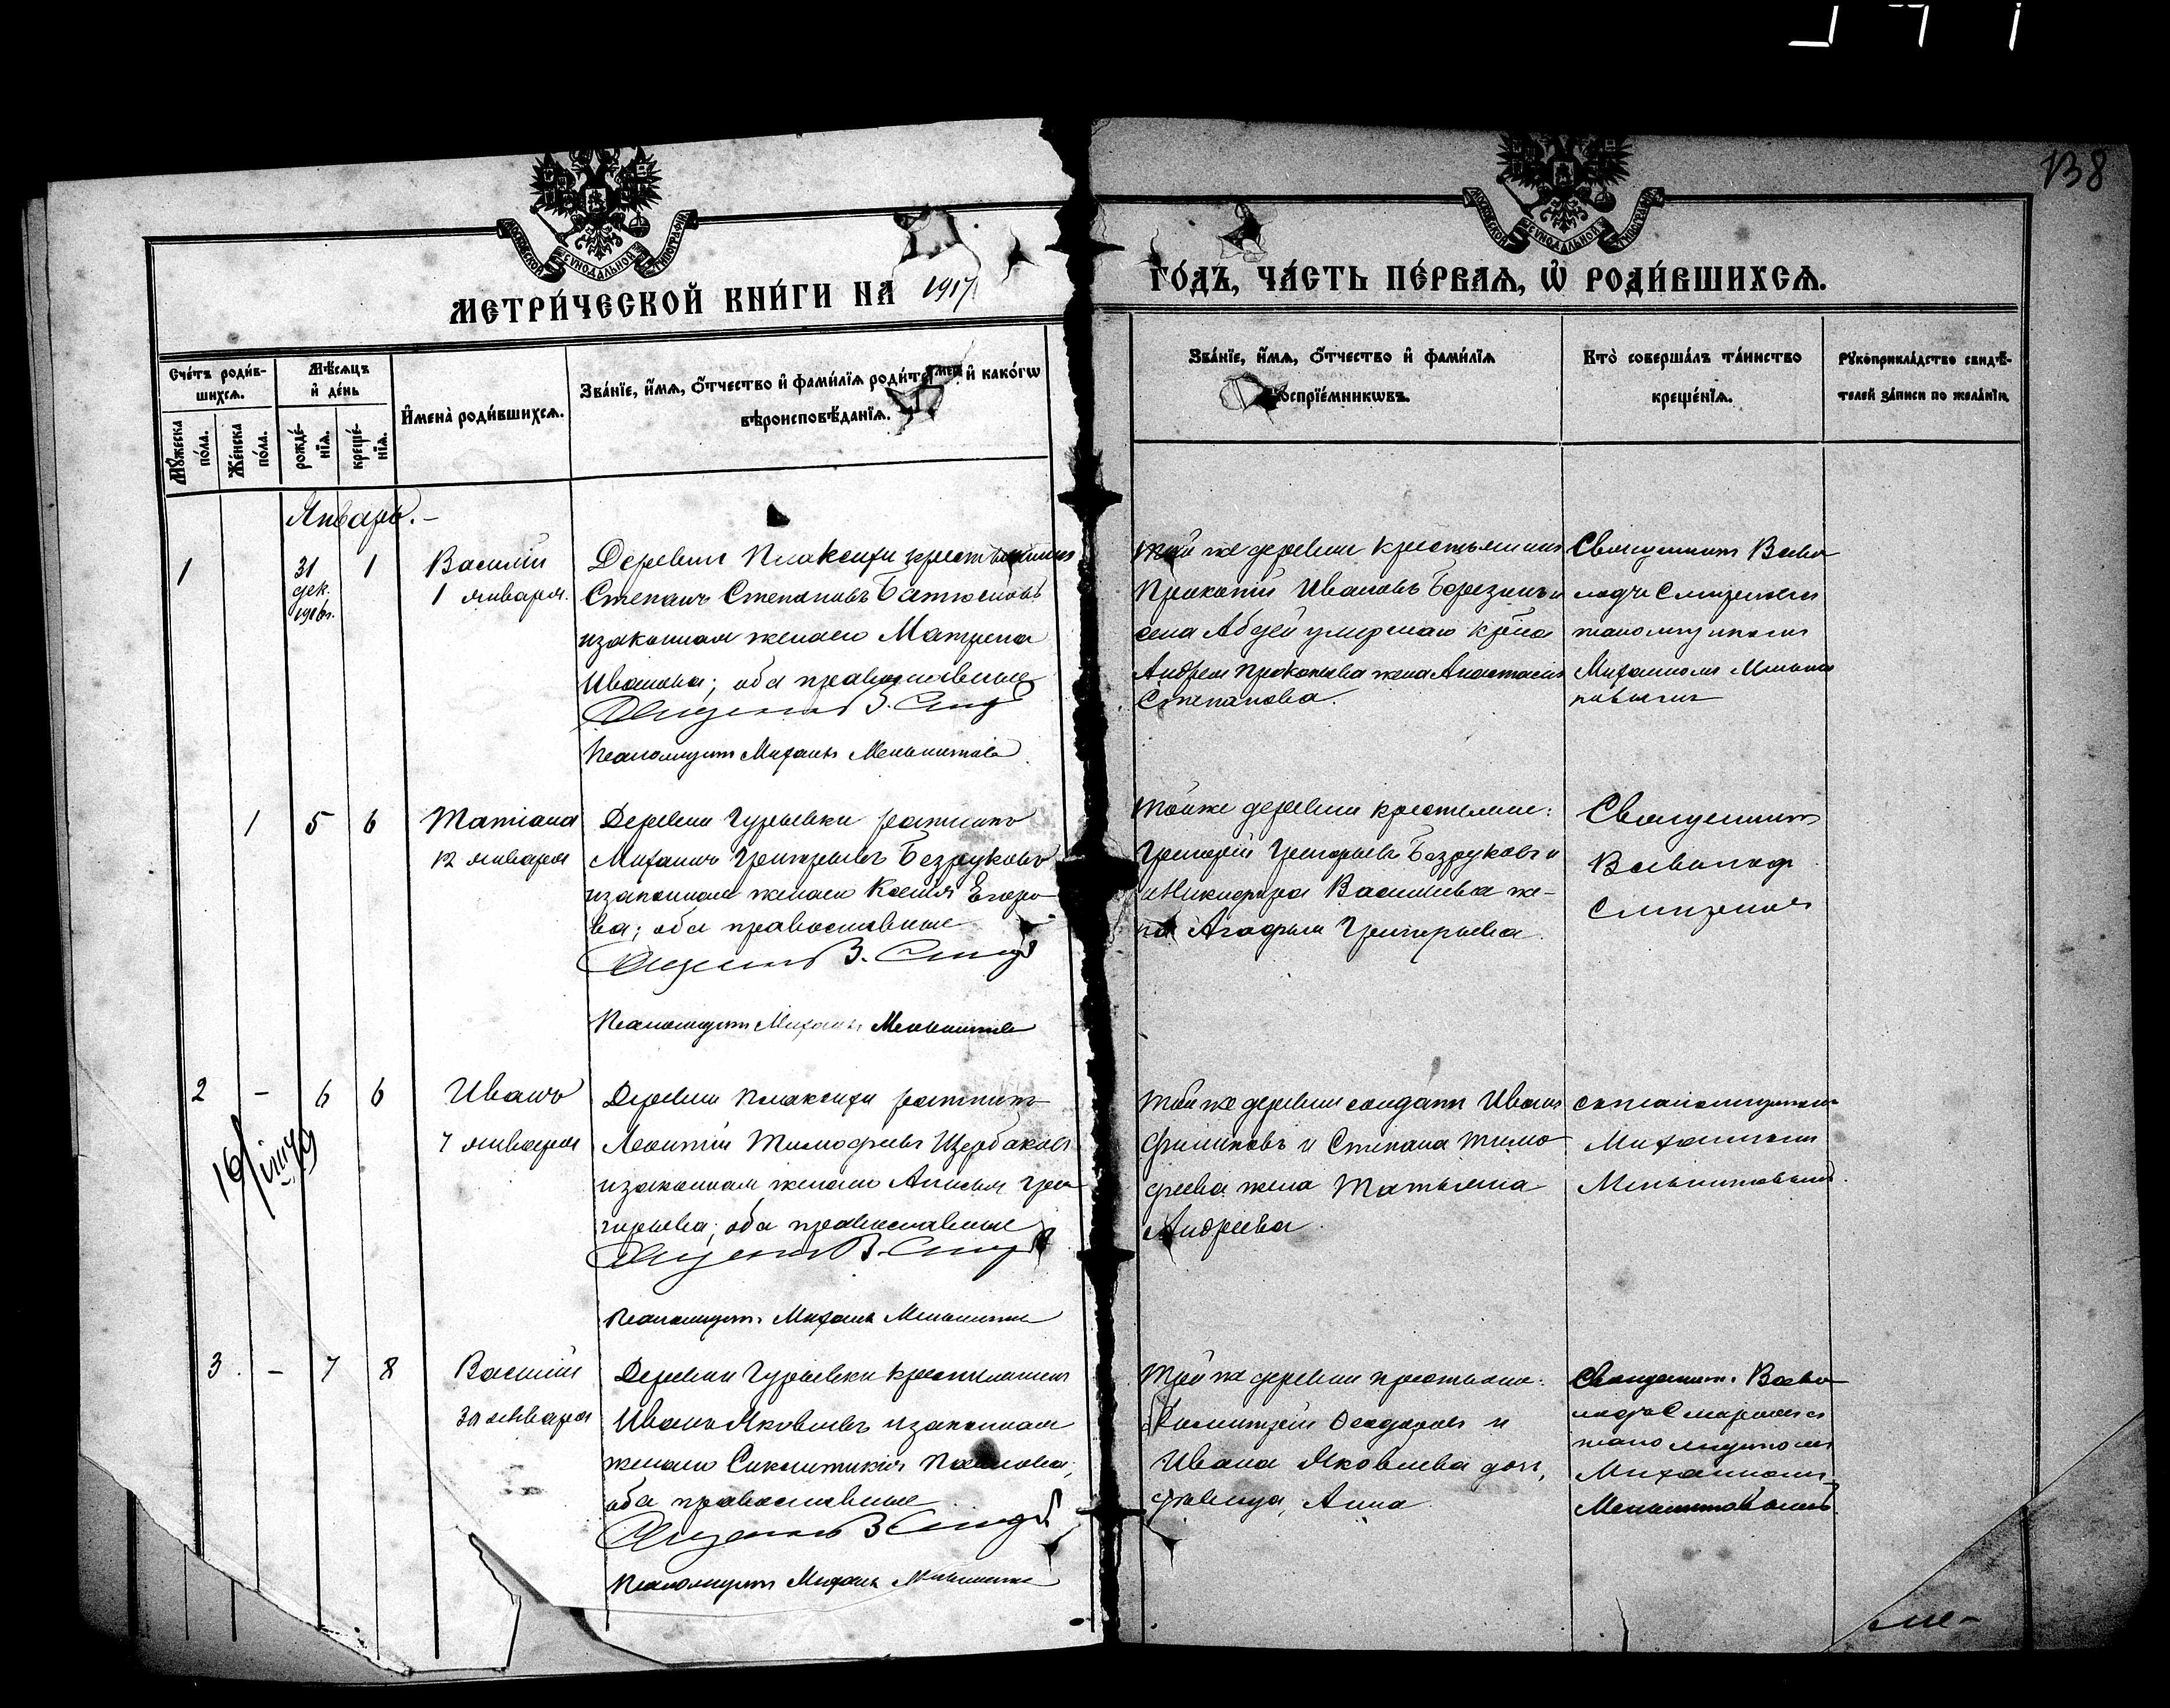 138
МОСКОВСКОЙ СѴНОДАЛЬНОЙ ТѴПОГРАФІИ
МОСКОВСКОЙ СѴНОДАЛЬНОЙ ТѴПОГРАФІИ
МЕТРИ́ЧЕСКОЙ КНИ́ГИ НА 1917
ГО́ДЪ, ЧА́СТЬ ПЕ́РВАѦ, Ѽ РОДИ́ВШИХСѦ.
Сче́тъ роди́в-
шихсѧ.
Мꙋ́жеска
по́ла.
Же́нска
по́ла.
Мѣ́сѧцъ
и҆ де́нь
рожде́-
нїѧ.
креще́-
нїѧ.
И҆мена̀ роди́вшихсѧ.
Зва́нїе, и҆́мѧ, ѻ҆́тчество и҆ фами́лїѧ роди́телей и҆ како́гѡ
вѣроисповѣ́данїѧ.
Зва́нїе, и҆́мѧ, ѻ҆́тчество и҆ фами́лїѧ
воспрїе́мникѡвъ.
Кто̀ соверша́лъ та́инство
креще́нїѧ.
Рꙋкоприкла́дство свидѣ́-
телей за́писи по жела́нїю.
Январь.
1
31
дек.
1916г.
1
Василій
1 января.
Деревни Плаксихи крестьянинъ
Степанъ Степановъ
и законная жена его Матрена
Иванова; оба православные
Священникъ В. Смир
Псаломщикъ Михаилъ
Той же деревни крестьянинъ
Прокопій Ивановъ Березинъ и
села умершаго кр-на
Андрея Прокопьева жена Анастасія
Степанова.
Священникъ Всево
лодъ Смирновъ съ
псаломщикомъ
Михаиломъ
1
5
6
Татіана
12 января
Деревни Гурьевки ратникъ
Михаилъ Григорьевъ Безруковъ
и законная жена его Ксенія Егоро-
ва; оба православные
Священникъ В. Смир
Псаломщикъ Михаилъ
Той же деревни крестьяне:
Григорій Григорьевъ Безруковъ и
Никифора Васильева же-
на Агафья Григорьева.
Священникъ
Всеволодъ
Смирновъ
2
-
6
6
Иванъ
7 января
Деревни Плаксихи ратникъ
Леонтій Тимофеевъ Щербаковъ
и законная жена его Анисья Гри
горьева; оба православные
Священникъ В. Смир
Псаломщикъ Михаилъ
Той же деревни солдатъ Иванъ
Филиповъ и Степана Тимо
феева жена Татьяна
Андреева
съ псаломщикомъ
Михаиломъ
3.
-
7
8
Василій
30 января
Деревни Гурьевки крестьянинъ
Иванъ Яковлевъ и законная
жена его Синклитикія Павлова;
оба православные
Священникъ В. Смир
Псаломщикъ Михаилъ
Той же деревни крестьяне:
Димитрій и
Ивана Яковлева дочь,
девица, Анна
Священникъ Всево
лодъ Смирновъ съ
псаломщикомъ
Михаиломъ